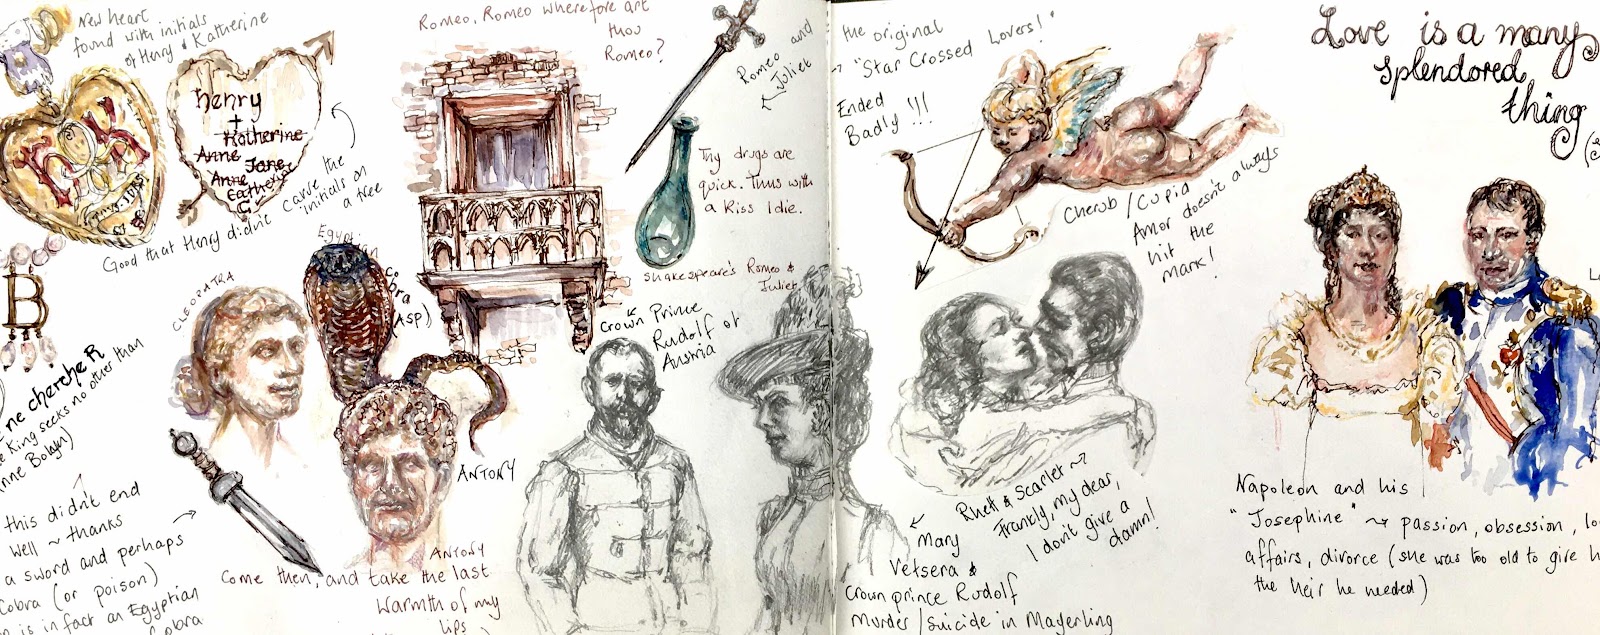 New heart
found with initials
of Henry & Katherine
henry
+
Katherine
Anne Jane
Anne
Catherine
C.
Good that Henry didn't carve the
initials on
a tree
B
ne cherche R
e King seeks no other than
nne Boleyn)
this didn't end
well ~ thanks
a sword and perhaps
Cobra (or poison)
is in fact an Egyptian
Cobra
CLEOPATRA
Egyptian
Cobra
(ASP)
ANTONY
ANTONY
Come then, and take the last
Warmth of my
lips
Romeo, Romeo wherefore art
thou
Romeo?
Romeo and
Juliet
Thy drugs are
quick. Thus with
a kiss I die.
Shakespeare's Romeo &
Juliet
Crown Prince
Rudolf of
Austria
the original
"Star Crossed Lovers!"
Ended
Badly !!!
Cherub / Cupid
Amor doesn't always
hit the
mark!
Rhett & Scarlet
Frankly, my dear,
I don't give a
damn!
Mary
Vetsera &
Crown prince Rudolf
murder / suicide in Mayerling
Love is a many
splendored
thing
Napoleon and his
"Josephine" ~ passion, obsession, lo
affairs, divorce (she was too old to give h
the heir he needed)